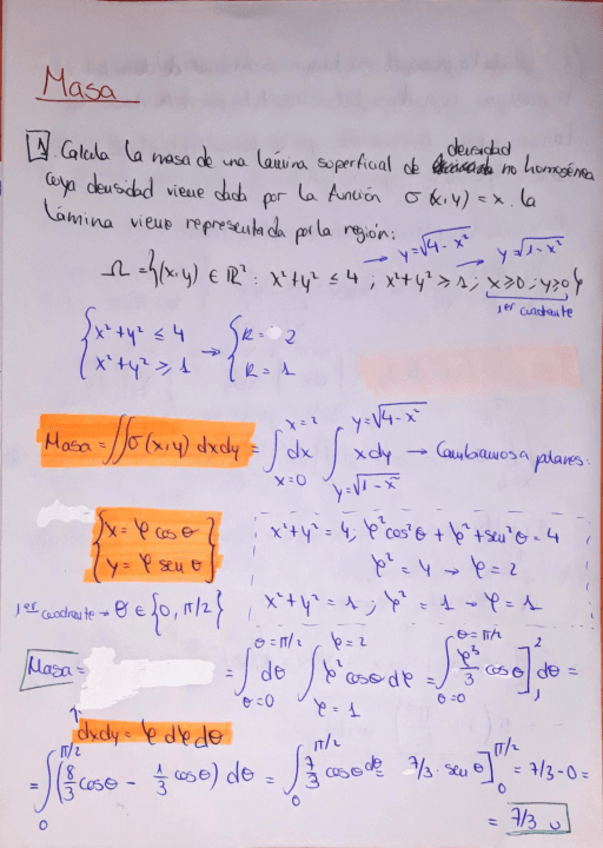 Masa
1. Calcula la masa de una lamina superficial de densidad no homogénea
cuya densidad viene dada por la función σ(x,y) = x. la
lámina viene representada por la región:
→ y=√4-x² → y=√1-x²
Ω = {(x,y) ∈ ℝ² : x²+y² ≤ 4 ; x²+y² ≥ 1 ; x≥0, y≥0}
1er cuadrante
{x²+y² ≤ 4 → {R = 2
{x²+y² ≥ 1 {R = 1
Masa = ∬σ(x,y) dxdy = ∫_{x=0}^{x=2} dx ∫_{y=√1-x²}^{y=√4-x²} x dy → Cambiamos a polares:
{x = ρ cos θ
{y = ρ sen θ
x²+y² = 4, ρ²cos²θ + ρ²+sen²θ = 4
ρ² = 4 → ρ = 2
1er cuadrante → θ ∈ {0, π/2}
x²+y² = 1 ; ρ² = 1 → ρ = 1
Masa = = ∫_{θ=0}^{θ=π/2} dθ ∫_{ρ=1}^{ρ=2} ρ² cosθ dρ = ∫_{θ=0}^{θ=π/2} ρ³/3 cosθ]₁² dθ =
↑ dxdy = ρ dρ dθ
= ∫₀^{π/2} (8/3 cosθ - 1/3 cosθ) dθ = ∫₀^{π/2} 7/3 cosθ dθ = 7/3 · sen θ]₀^{π/2} = 7/3 - 0 =
= 7/3 u